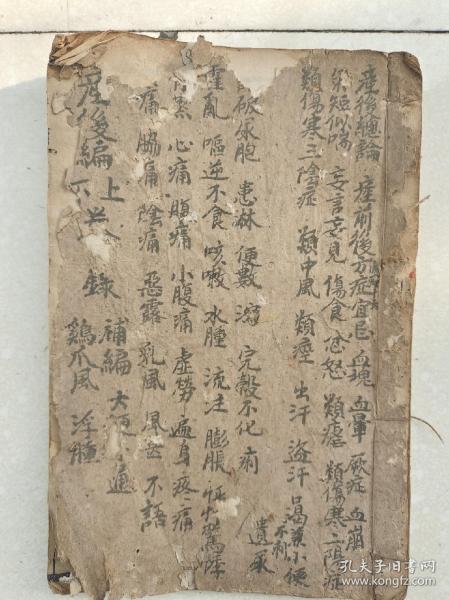 產後總論 產前後方症宜忌 血塊 血暈 厥症 血崩
氣短似喘 妄言妄見 傷食 忿怒 類瘧 類傷寒二陽症
類傷寒三陰症 類中風 類痙 出汗 盜汗 口渴兼小便不利 遺尿
破尿胞 患淋 便數 瀉 完穀不化 痢
霍亂 嘔逆不食 咳嗽 水腫 流注 膨脹 怔忡驚悸
骨蒸 心痛 腹痛 小腹痛 虛勞 遍身疼痛
痛 脇痛 陰痛 惡露 乳風 風甚 不語
產後編上 錄 補編 大便不通
雞爪風 浮腫
孔夫子旧书网
www.kongfz.com